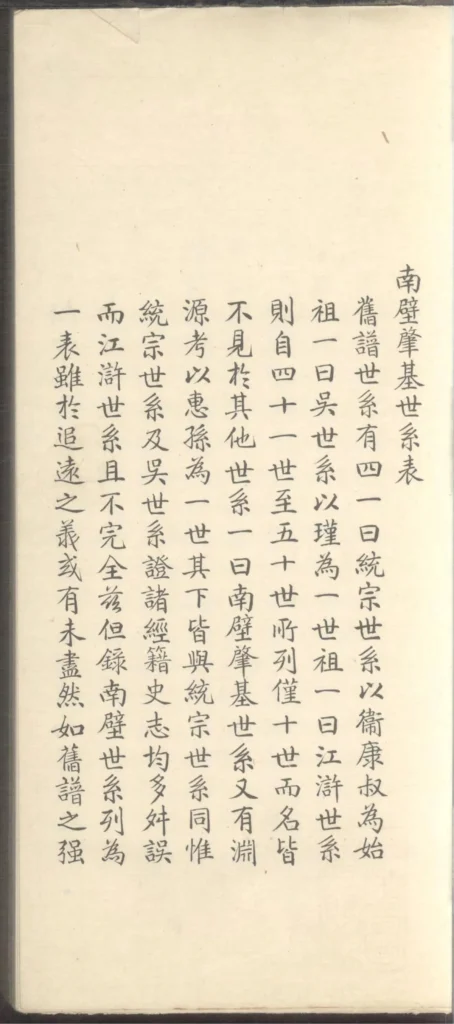 南壁肇基世系表
舊譜世系有四一曰統宗世系以衞康叔為始
祖一曰吳世系以瑾為一世祖一曰江滸世系
則自四十一世至五十世所列僅十世而名皆
不見於其他世系一曰南壁肇基世系又有淵
源考以惠孫為一世其下皆與統宗世系同惟
統宗世系及吳世系證諸經籍史志均多舛誤
而江滸世系且不完全茲但錄南壁世系列為
一表雖於追遠之義或有未盡然如舊譜之强